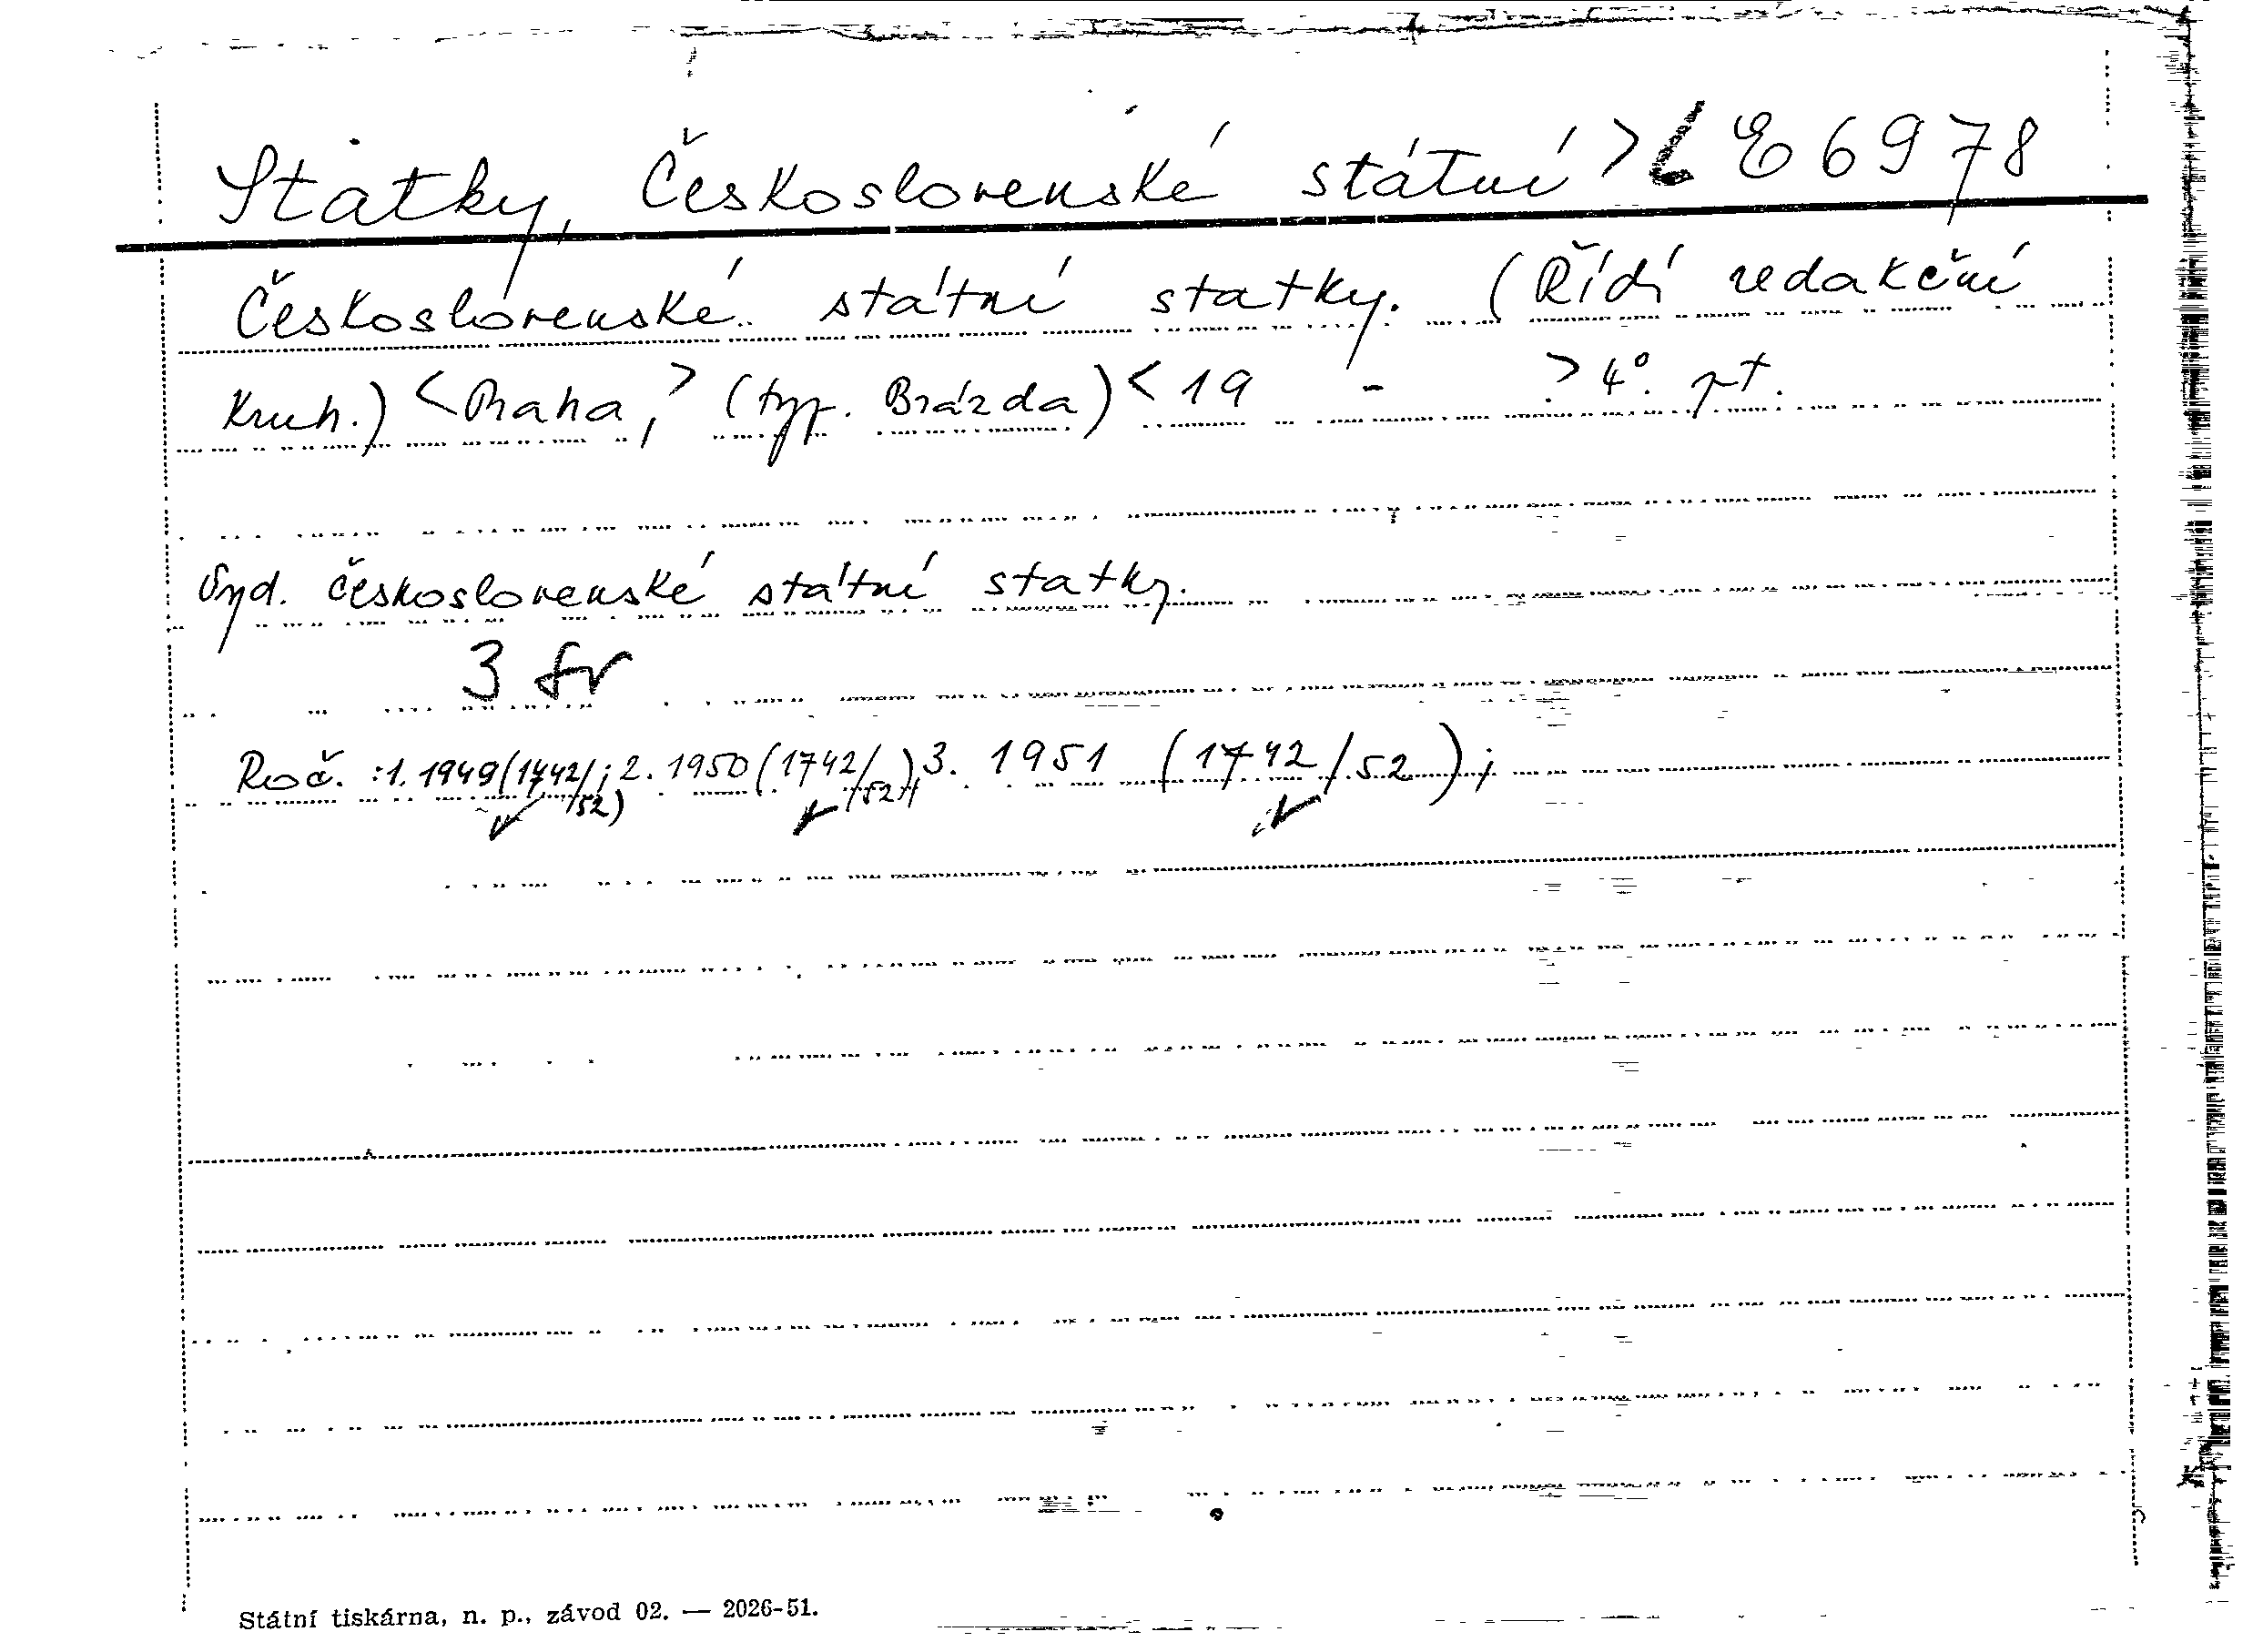 Statky, Československé státní > E 6978
Československé státní statky. (Řídí redakční
kruh.) <Praha,> (typ. Brázda) <19 - > 4°. pt.
Vyd. Československé státní statky.
3 fr
Roč. : 1. 1949 (1742/52); 2. 1950 (1742/52); 3. 1951 (1742/52);
Státní tiskárna, n. p., závod 02. — 2026-51.